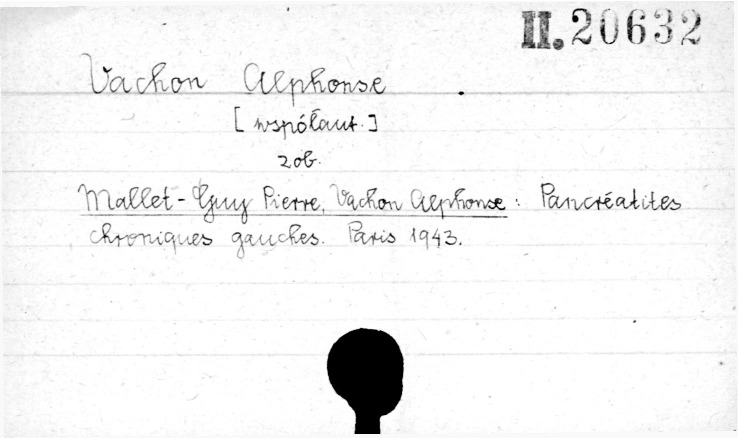 II. 20632
Vachon Alphonse
[współaut.]
zob.
Mallet-Guy Pierre, Vachon Alphonse: Pancréatites
chroniques gauches. Paris 1943.